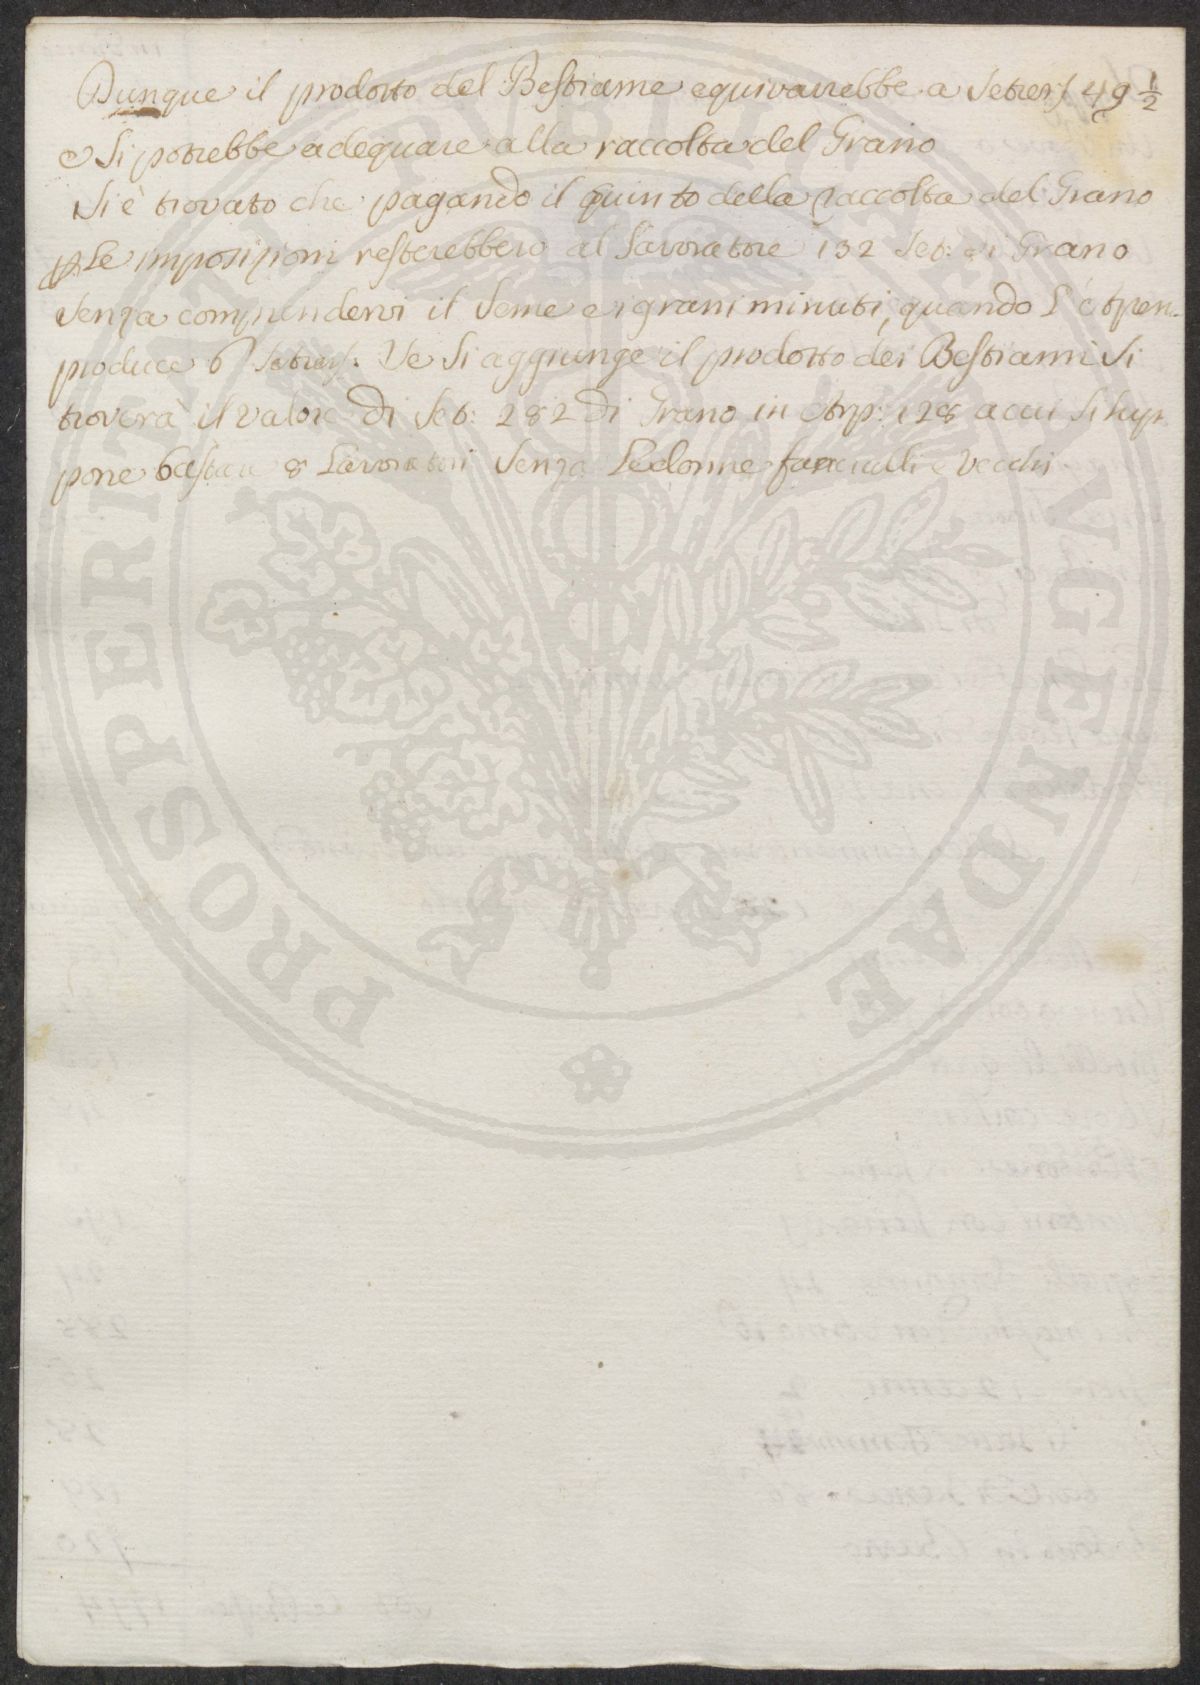 Dunque il prodotto del Bestiame equivarrebbe a Setiers 49 1/2
e Si potrebbe adequare alla raccolta del Grano
Si è trovato che pagando il quinto della raccolta del Grano
p Le imposizioni resterebbero al Lavoratore 132 Set: di Grano
Senza comprendervi il Seme e i grani minuti, quando L'Arpen.
produce 6 Setiers. Se Si aggiunge il prodotto dei Bestiami Si
troverà il valore di Set: 282 di Grano in Arp: 128 a cui Si sup
pone bastare 8 Lavoratori Senza Le donne fanciulli e vecchi
PROSPERITATI PUBLICAE AUGENDAE